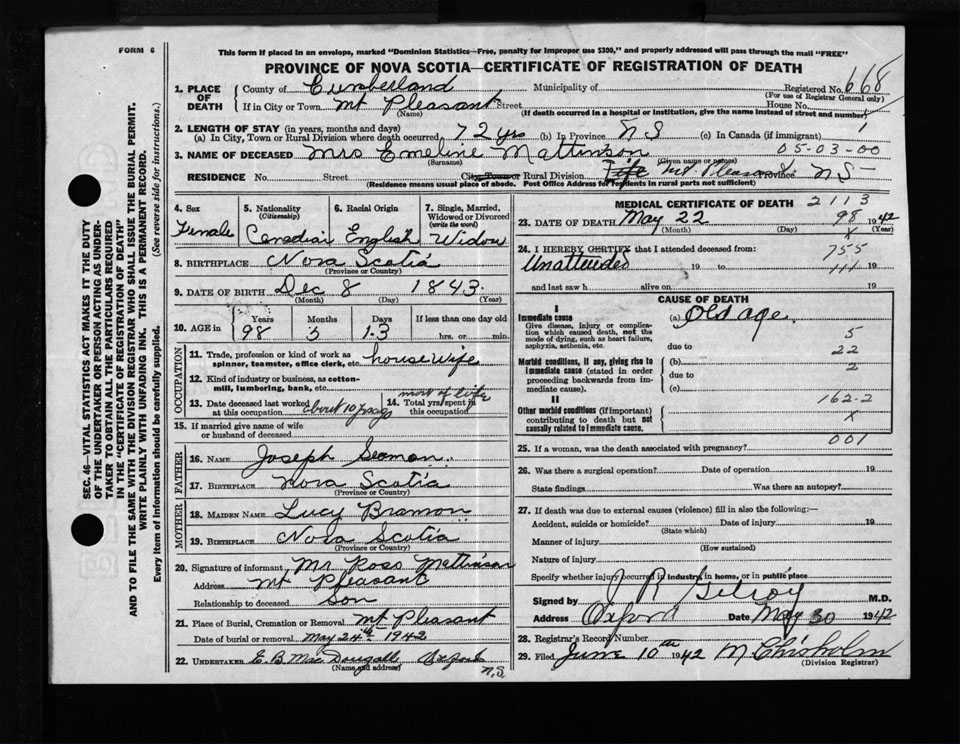 FORM 6
This form if placed in an envelope, marked "Dominion Statistics—Free, penalty for improper use $300," and properly addressed will pass through the mail "FREE"
PROVINCE OF NOVA SCOTIA—CERTIFICATE OF REGISTRATION OF DEATH
SEC. 46—VITAL STATISTICS ACT MAKES IT THE DUTY
OF THE UNDERTAKER OR PERSON ACTING AS UNDER-
TAKER TO OBTAIN ALL THE PARTICULARS REQUIRED
IN THE "CERTIFICATE OF REGISTRATION OF DEATH"
AND TO FILE THE SAME WITH THE DIVISION REGISTRAR WHO SHALL ISSUE THE BURIAL PERMIT.
WRITE PLAINLY WITH UNFADING INK. THIS IS A PERMANENT RECORD.
Every item of Information should be carefully supplied. (See reverse side for instructions.)
1. PLACE OF DEATH
County of Cumberland Municipality of Registered No. 668
(For use of Registrar General only)
If in City or Town Mt Pleasant Street House No.
(Name) (If death occurred in a hospital or institution, give the name instead of street and number)
2. LENGTH OF STAY (in years, months and days) 1
(a) In City, Town or Rural Division where death occurred 72 yrs (b) In Province NS (c) In Canada (if immigrant)
3. NAME OF DECEASED Mrs Emeline Mattinson 05-03-00
(Surname) (Given name or names)
RESIDENCE No. Street City, Town or Rural Division Life Mt Pleasant Province NS
(Residence means usual place of abode. Post Office Address for residents in rural parts not sufficient)
4. Sex
Female
5. Nationality
(Citizenship)
Canadian
6. Racial Origin
English
7. Single, Married, Widowed or Divorced
(write the word)
Widow
8. BIRTHPLACE Nova Scotia
(Province or Country)
9. DATE OF BIRTH Dec 8 1843
(Month) (Day) (Year)
10. AGE in Years Months Days If less than one day old
98 5 13 hrs. or min.
OCCUPATION
11. Trade, profession or kind of work as spinner, teamster, office clerk, etc. housewife
12. Kind of industry or business, as cotton-mill, lumbering, bank, etc.
13. Date deceased last worked at this occupation about 10 yrs ago
14. Total yrs. spent in this occupation most of life
15. If married give name of wife or husband of deceased
FATHER
16. NAME Joseph Seaman
17. BIRTHPLACE Nova Scotia
(Province or Country)
MOTHER
18. MAIDEN NAME Lucy Bramon
19. BIRTHPLACE Nova Scotia
(Province or Country)
20. Signature of informant Mr Ross Mattinson
Address Mt Pleasant
Relationship to deceased Son
21. Place of Burial, Cremation or Removal Mt Pleasant
Date of burial or removal May 24th 1942
22. UNDERTAKER E B MacDougall Oxford
(Name and address) N.S.
MEDICAL CERTIFICATE OF DEATH 2113
23. DATE OF DEATH May 22 98 1942
(Month) (Day) (Year)
x
24. I HEREBY CERTIFY that I attended deceased from: 755
Unattended 19 to 19
and last saw h alive on 19
CAUSE OF DEATH
I
Immediate cause
Give disease, injury or complication which caused death, not the mode of dying, such as heart failure, asphyxia, asthenia, etc.
(a) Old age
5
due to
22
Morbid conditions, if any, giving rise to immediate cause (stated in order proceeding backwards from immediate cause).
(b)
2
due to
(c)
II
162-2
Other morbid conditions (if important) contributing to death but not causally related to immediate cause.
x
001
25. If a woman, was the death associated with pregnancy?
26. Was there a surgical operation? Date of operation 19
State findings Was there an autopsy?
27. If death was due to external causes (violence) fill in also the following:—
Accident, suicide or homicide? Date of injury 19
(State which)
Manner of injury
(How sustained)
Nature of injury
Specify whether injury occurred in industry, in home, or in public place
Signed by J R Gilroy M.D.
Address Oxford Date May 30 1942
28. Registrar's Record Number
29. Filed June 10th 1942 M Chisholm
(Division Registrar)